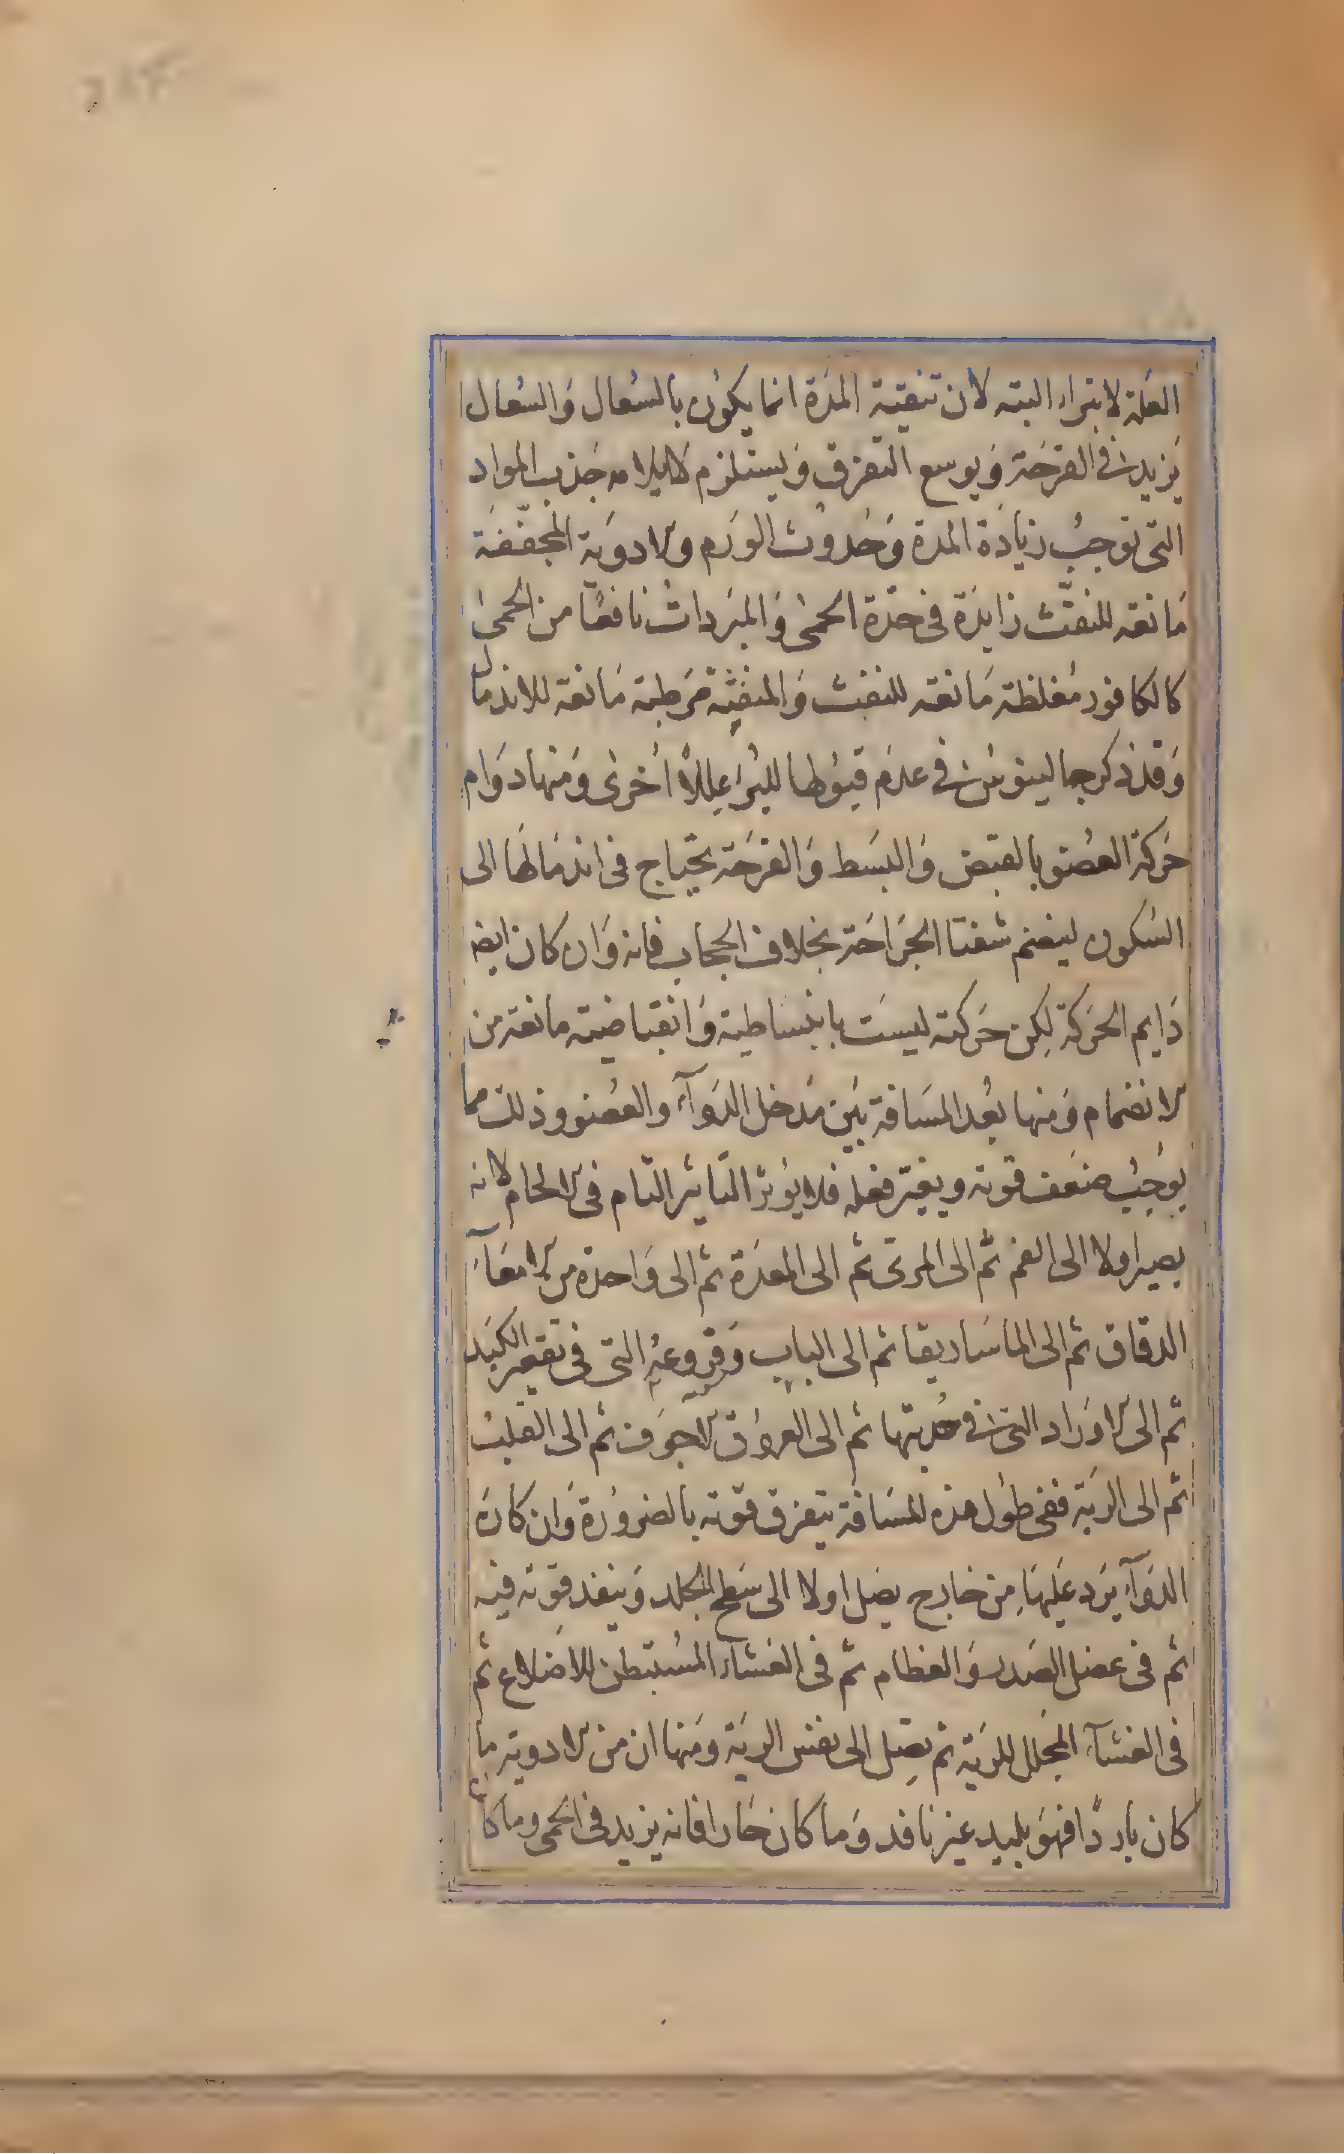 العلة لا تبراء البته لان تنقية المدة انما يكون بالسعال والسعال
يزيد في القرحة ويوسع التفرق ويستلزم الايلام جذب المواد
التى توجب زيادة المدة وحدوث الورم والادوية المجففة
مانعه للنفث زايدة في حدة الحمى والمبردات نافعا من الحمى
كالكافور مغلظة مانعه للنفث والمنفثة مرطبة مانعة للاندمال
وقد ذكر جالينوس في عدم قبولها للبرء عللا اخرى ومنها دوام
حركة العضو بالقبض والبسط والقرحة يحتاج في اندمالها الى
السكون لينضم شفتا الجراحة بخلاف الحجاب فانه وان كان ايضا
دايم الحركة لكن حركته ليست بانبساطية وانقباضية مانعة من
الانضمام ومنها بعد المسافة بين مدخل الدوآء والعضو وذلك مما
يوجب ضعف قوته ويغير فعله فلا يؤثر التاثير التام في الالحام لانه
يصير اولا الى الفم ثم الى المرى ثم الى المعدة ثم الى واحدة من الامعآء
الدقاق ثم الى الماساريقا ثم الى الباب وفروعه التى في تقعير الكبد
ثم الى الاوراد التى في حدبتها ثم الى العروق الاجوف ثم الى القلب
ثم الى الرية ففى طول هذه المسافة يتفرق قوته بالضرورة وان كان
الدوآء يرد عليها من خارج يصل اولا الى سطح الجلد وينفد قوته فيه
ثم في عضل الصدر والعظام ثم في الغشاء المستبطن للاضلاع ثم
في الغشآء المجلل للرية ثم يصل الى نفس الرية ومنها ان من الادوية ما
كان باردا فهو بليد غير نافد وما كان حارا فانه يزيد في الحمى وما كان